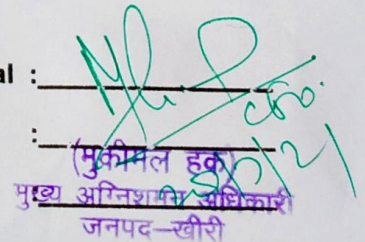 al :
:
(मुकीमल हक)
मुख्य अग्निशमन अधिकारी
जनपद-खीरी